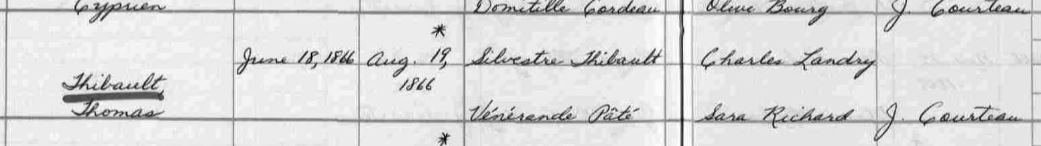 Cyprien Domitille Cordeau Olive Bourg J. Courteau
*
June 18, 1866 Aug. 19, Silvestre Thibault Charles Landry
Thibault, 1866
Thomas Vénérande Pâté Sara Richard J. Courteau
*